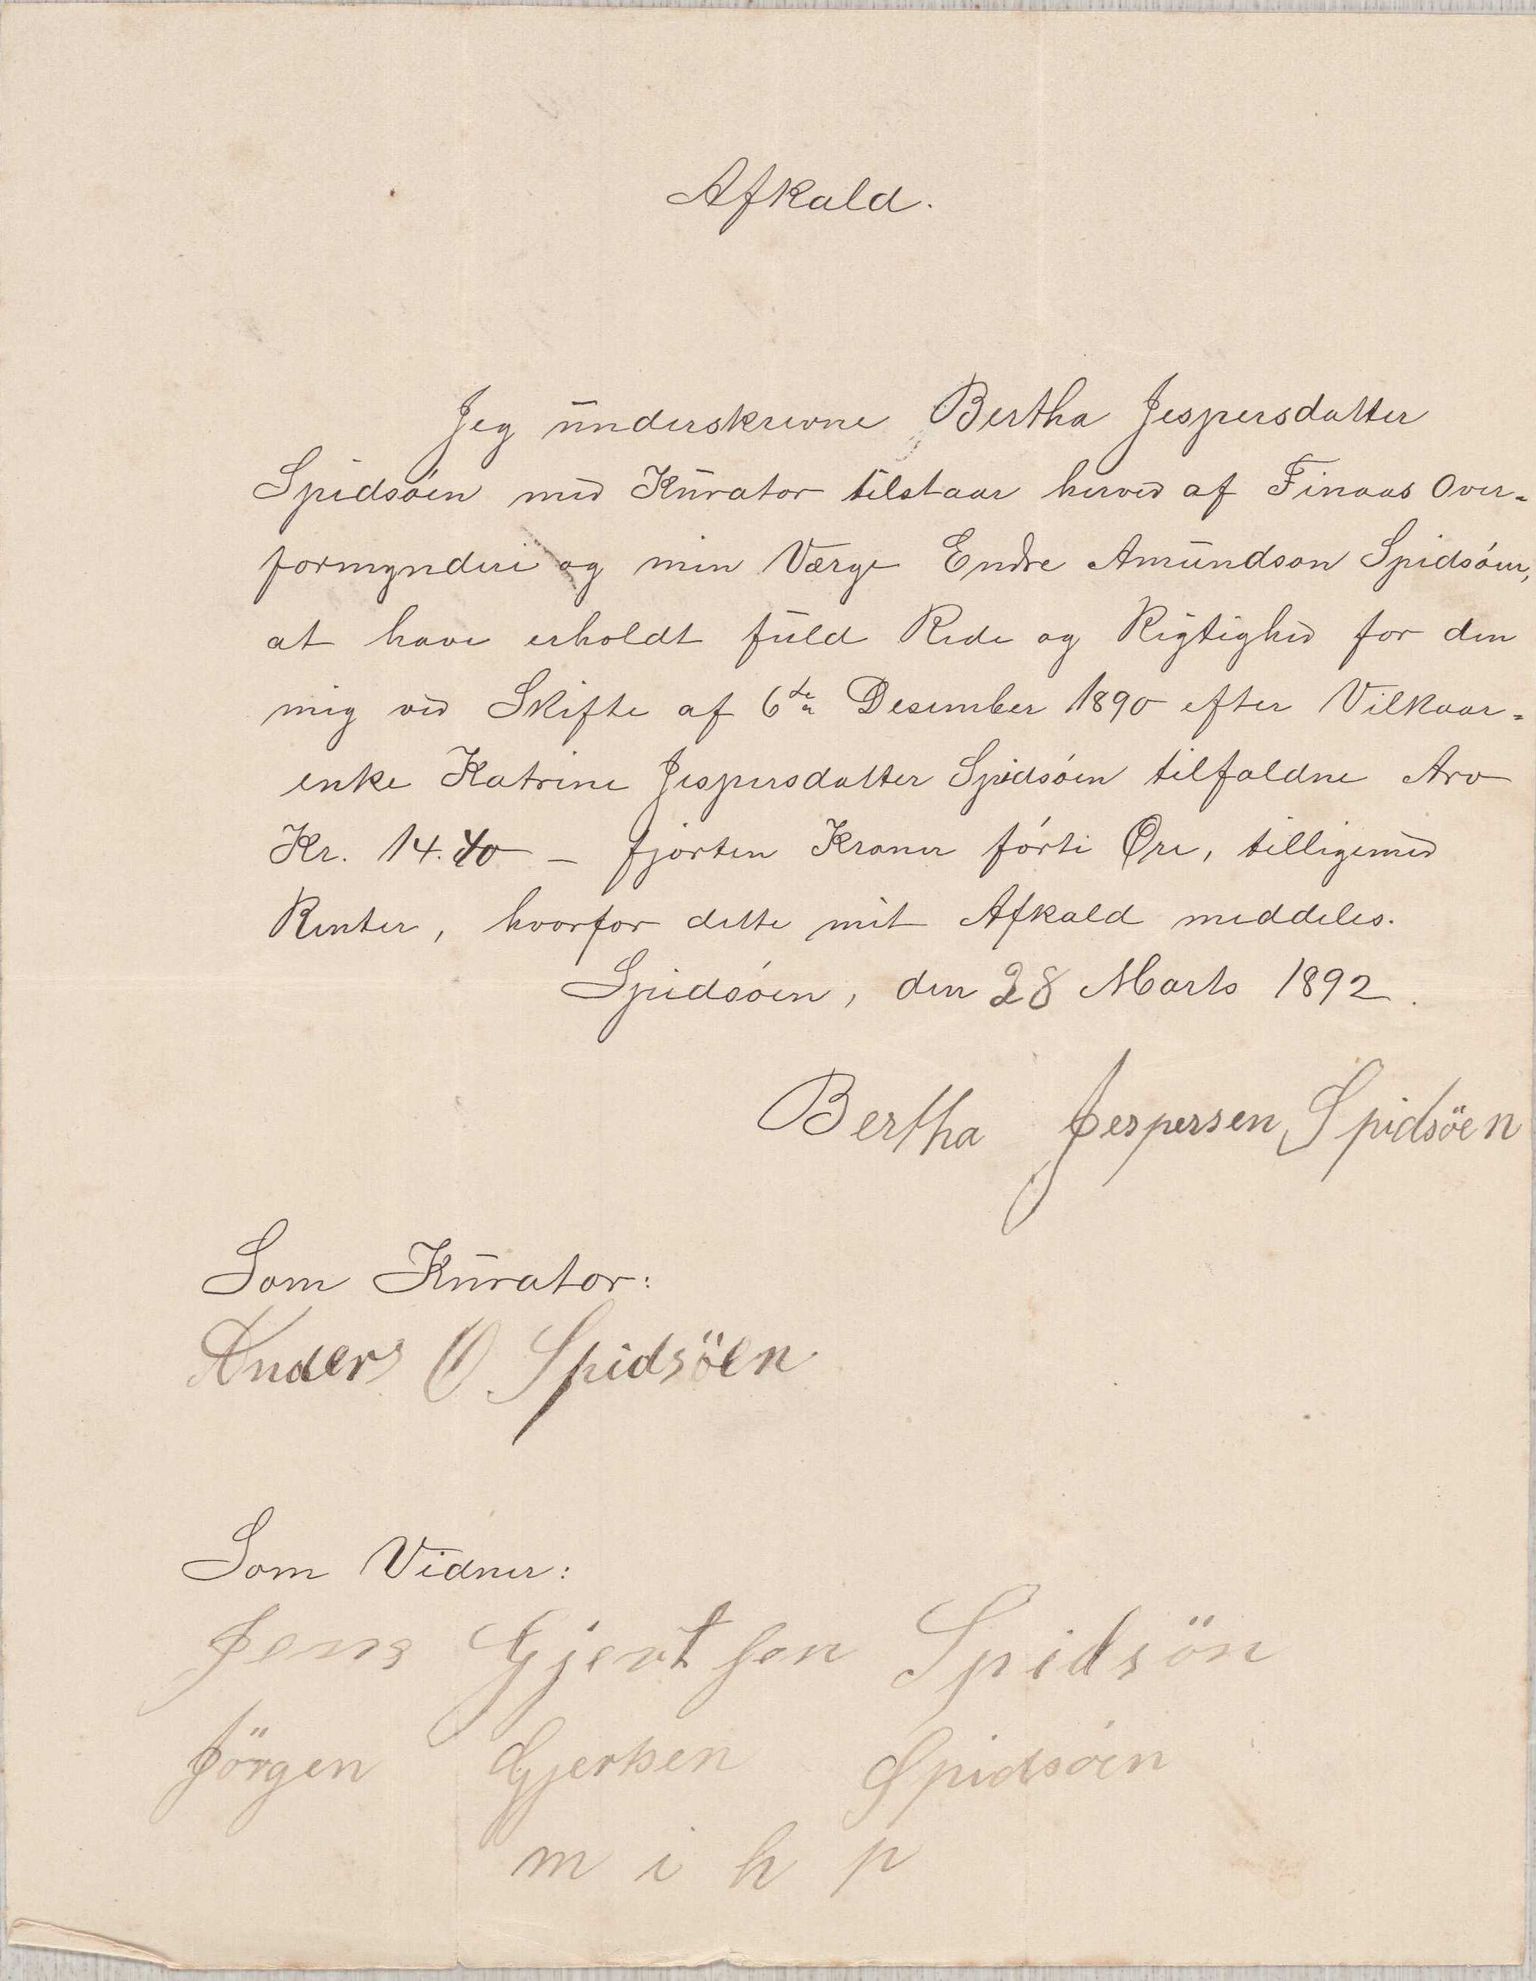 Afkald.
Jeg underskrevne Bertha Jespersdatter
Spidsøen med Kurator tilstaar herved af Finaas Over-
formynderi og min Værge Endre Amundson Spidsøen,
at have erholdt fuld Rede og Rigtighed for den
mig ved Skifte af 6te Desember 1890 efter Vilkaar-
enke Katrine Jespersdatter Spidsøen tilfaldne Arv
Kr. 14.40 – fjorten Kroner førti Øre, tilligemed
Renter, hvorfor dette mit Afkald meddeles.
Spidsøen, den 28 Marts 1892.
Bertha Jespersen Spidsöen
Som Kurator:
Anders O Spidsöen
Som Vidner:
Jens Gjertsen Spidsön
Jörgen Gjertsen Spidsóen
m i h p